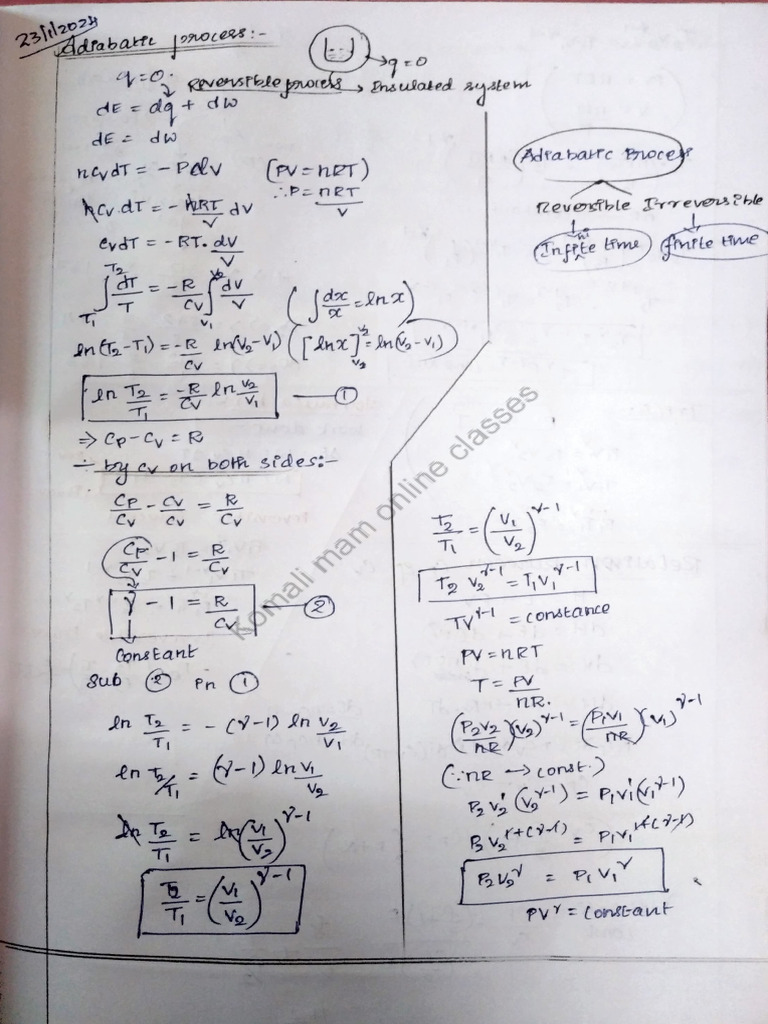 23/1/2024
Adiabatic process:-
→ q=0
q=0.
Reversible process → Insulated system
dE = dq + dw
dE = dw
nCvdT = -Pdv (PV = nRT)
∴P = nRT/V
nCv.dT = -nRT/V dv
CvdT = -RT. dv/V
∫T1^T2 dT/T = -R/Cv ∫V1^V2 dv/V (∫dx/x = ln x)
ln(T2-T1) = -R/Cv ln(V2-V1) ([ln x]^V2_V2 = ln(V2-V1))
ln T2/T1 = -R/Cv ln V2/V1 — ①
⇒ Cp-Cv = R
÷ by Cv on both sides:-
Cp/Cv - Cv/Cv = R/Cv
Cp/Cv - 1 = R/Cv
γ - 1 = R/Cv — ②
Constant
Sub ② in ①
ln T2/T1 = -(γ-1) ln V2/V1
ln T2/T1 = (γ-1) ln V1/V2
ln T2/T1 = ln(V1/V2)^γ-1
T2/T1 = (V1/V2)^γ-1
Adiabatic Process
Reversible Irreversible
Infinite time finite time
T2/T1 = (V1/V2)^γ-1
T2 V2^γ-1 = T1V1^γ-1
TV^γ-1 = constance
PV = nRT
T = PV/nR.
(P2V2/nR)(V2)^γ-1 = (P1V1/nR)(V1)^γ-1
(∵nR → const.)
P2V2^1(V2^γ-1) = P1V1^1(V1^γ-1)
P2V2^1+(γ-1) = P1V1^1+(γ-1)
P2V2^γ = P1V1^γ
PV^γ = constant
Komali mam online classes